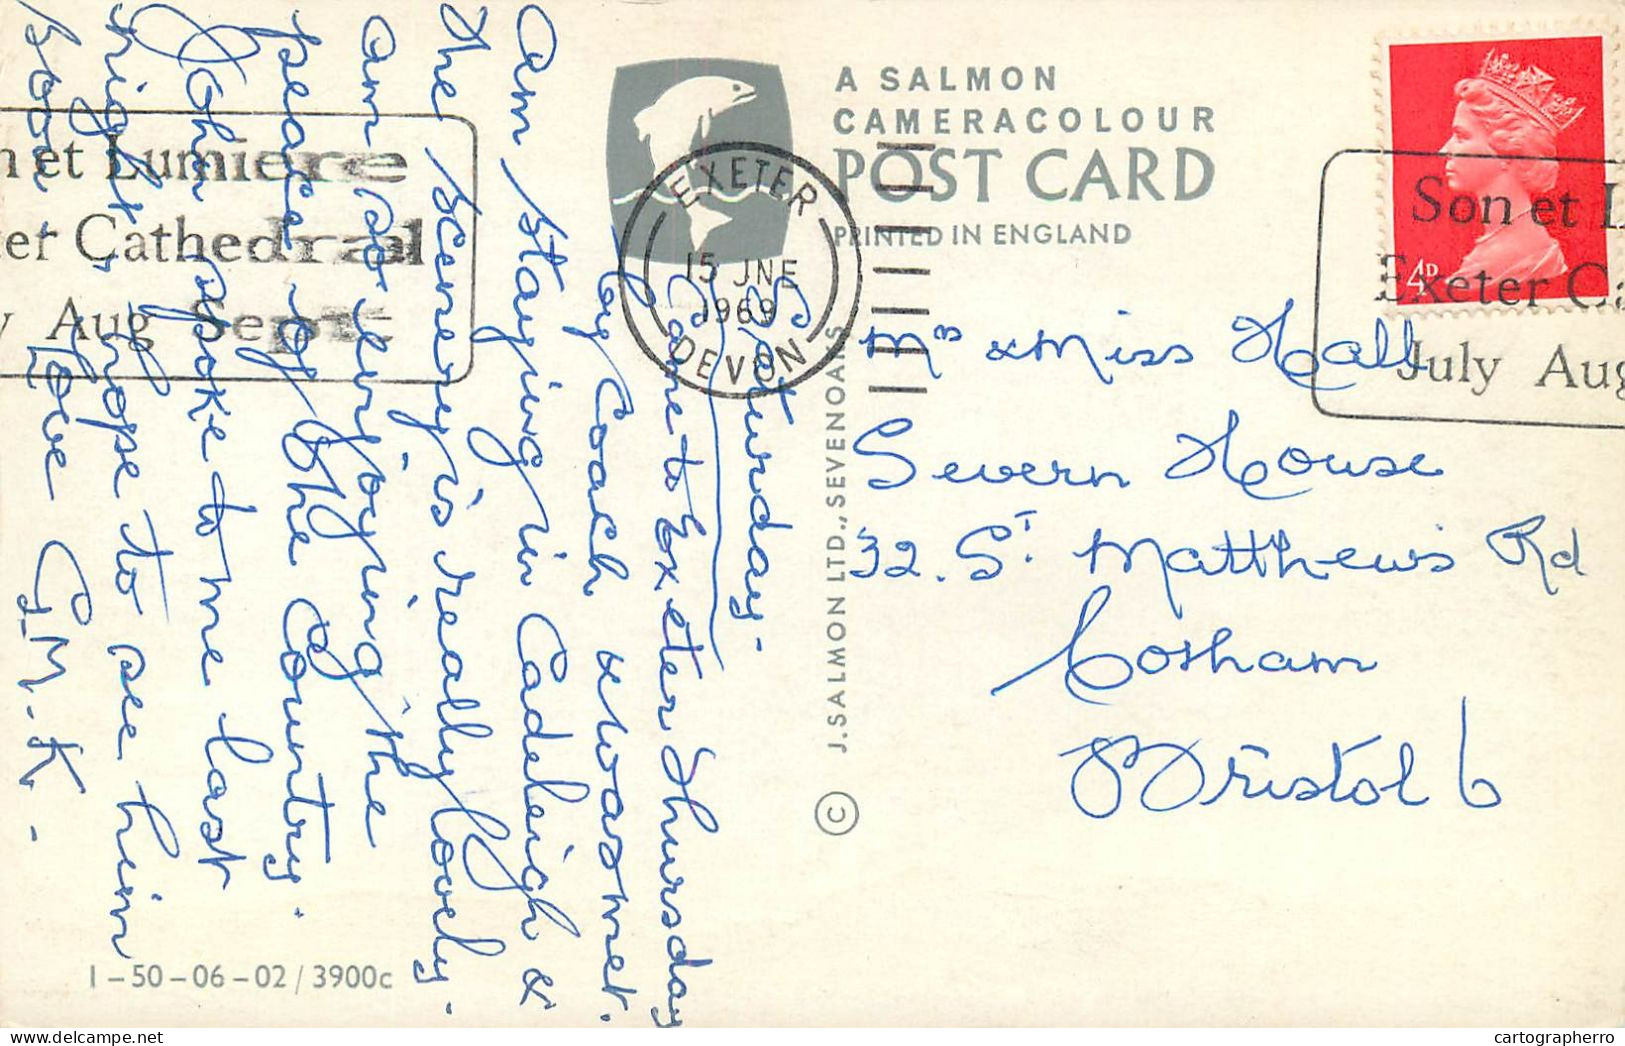 A SALMON
CAMERACOLOUR
POST CARD
PRINTED IN ENGLAND
EXETER
15 JNE
1969
DEVON
n et Lumiere
ter Cathedral
y Aug Sept
Son et L
Exeter Ca
July Aug
4D
J. SALMON LTD., SEVENOAKS
©
Mrs & Miss Hall
Severn House
32. St Matthews Rd
Cotham
Bristol 6
Saturday.
Came to Exeter Thursday
by Coach & was met.
Am staying in Cadeleigh &
the scenery is really lovely.
am so enjoying the
peace of the Country.
John spoke to me last
night & hope to see him
soon.
Love G.M.K.
1-50-06-02/3900c
cartographerro